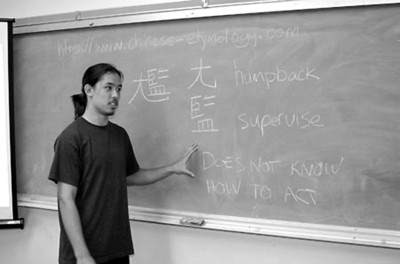 http://www.chinese-etymology.com
尷 尢 humpback
監 supervise
DOES NOT KNOW
HOW TO ACT